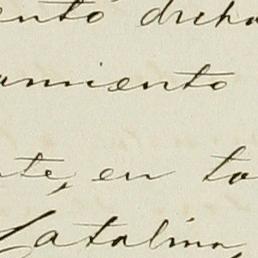 ento dicho
amiento
te, en to
Catalina,